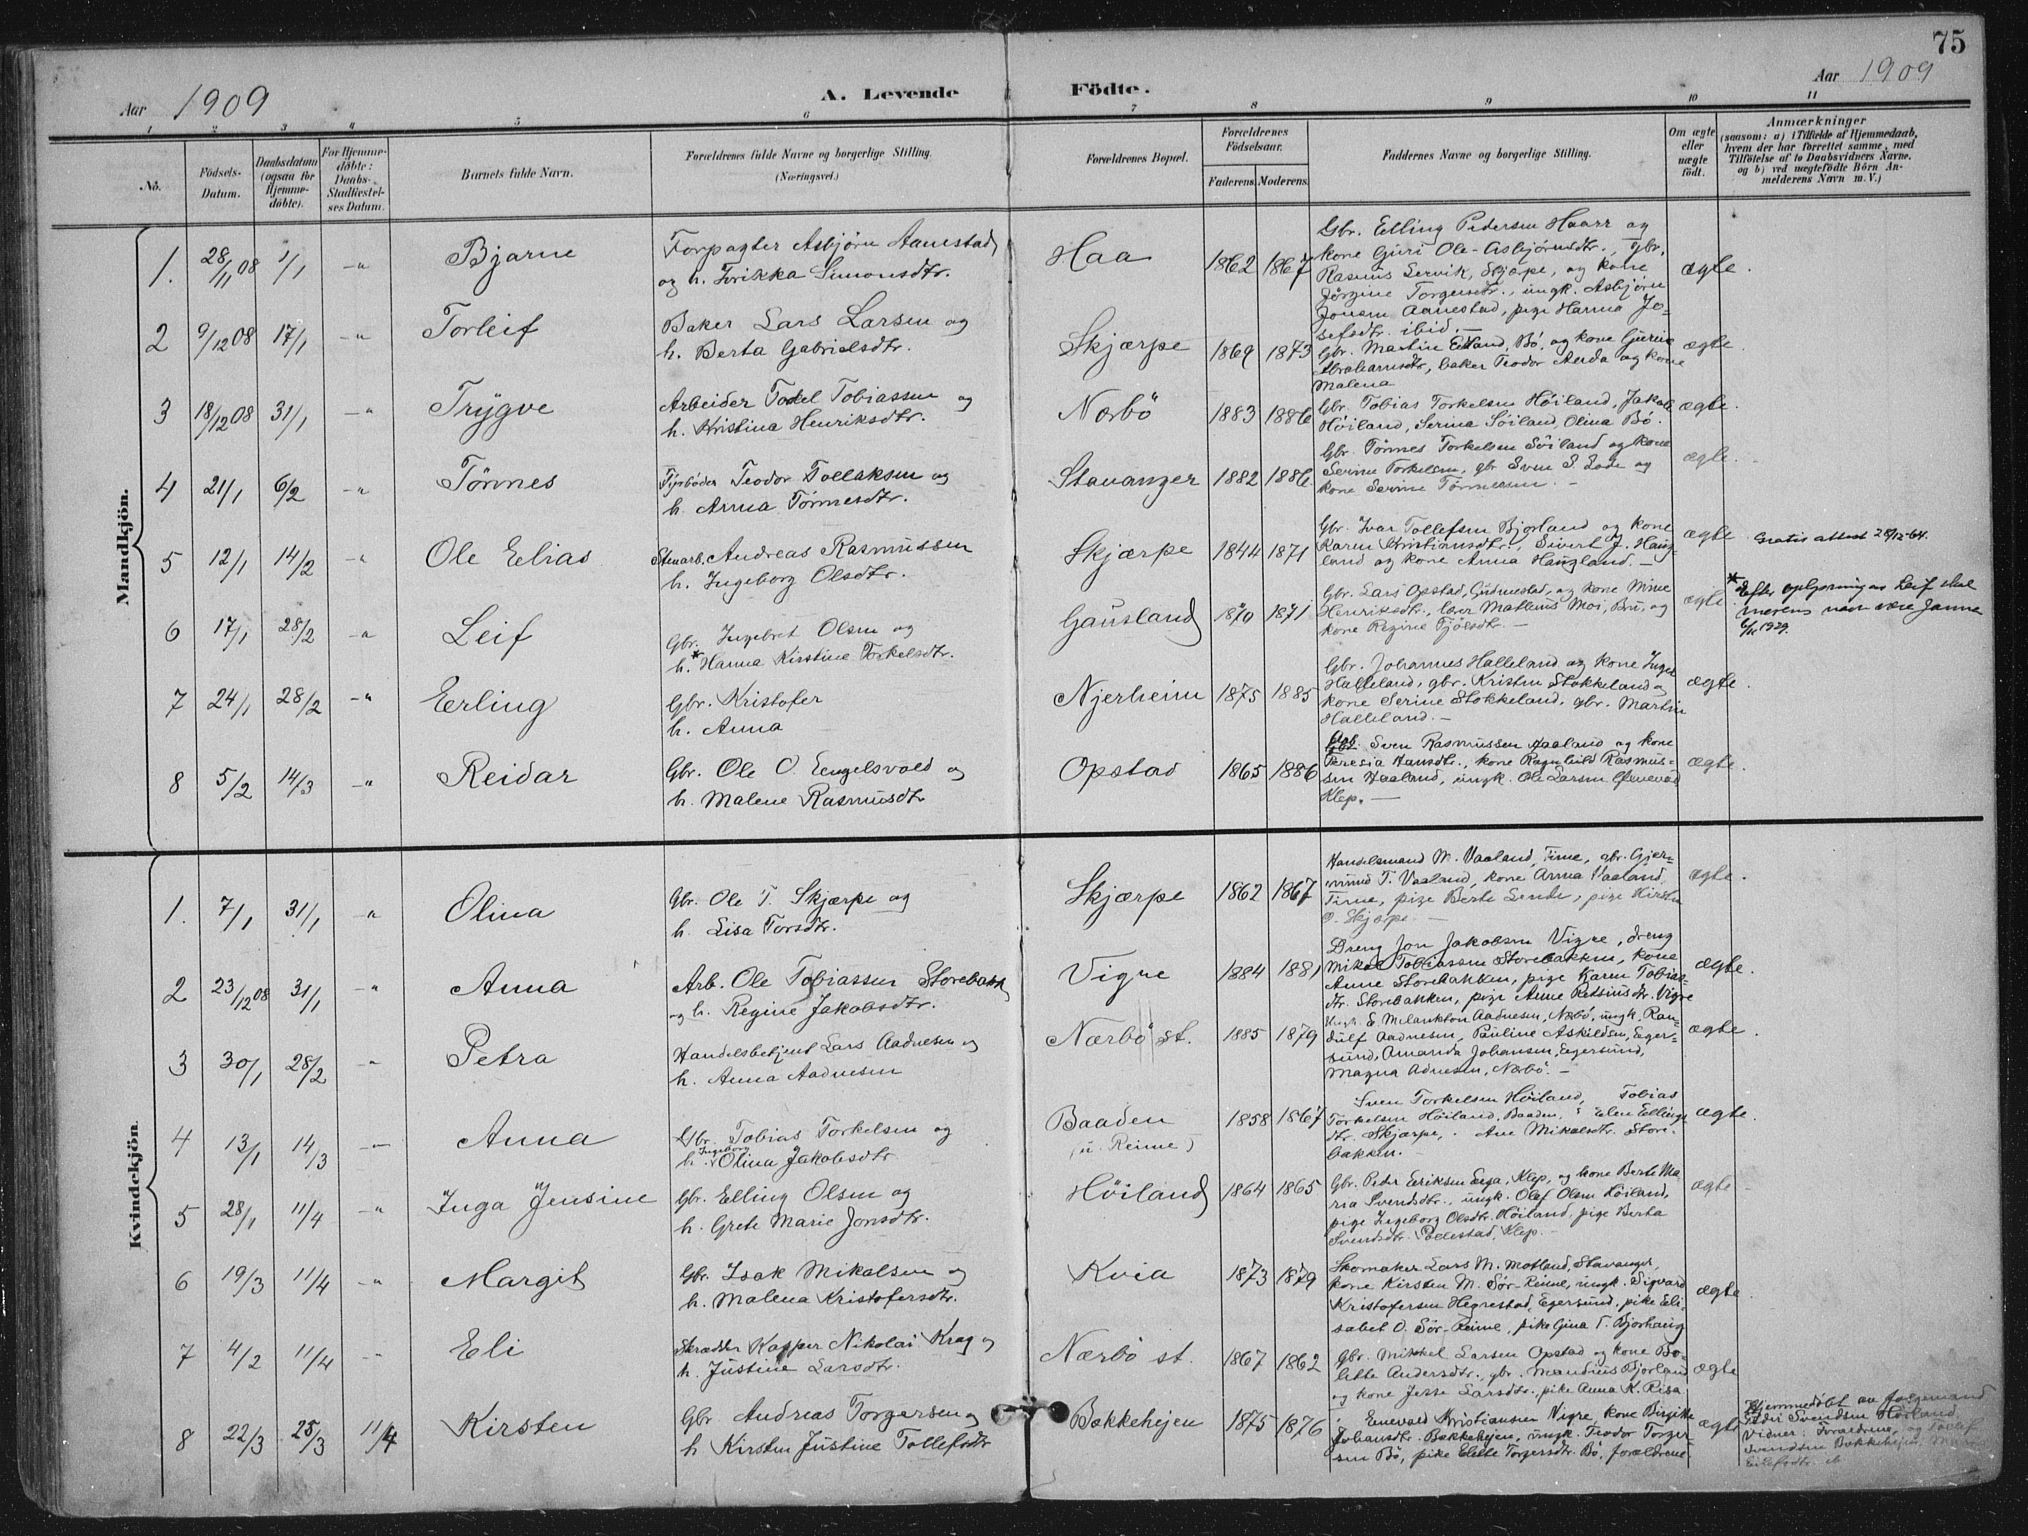 75
Aar 1909
A. Levende Födte.
Aar 1909
1 2 3 4 5 6 7 8 9 10 11
No.
Födsels-
Datum.
Daabsdatum
(ogsaa for
Hjemme-
döbte).
For Hjemme-
döbte:
Daabs-
Stadfæstel-
ses Datum.
Barnets fulde Navn.
Forældrenes fulde Navne og borgerlige Stilling.
(Næringsvei.)
Forældrenes Bopæl.
Forældrenes
Födselsaar.
Faderens. Moderens.
Faddernes Navne og borgerlige Stilling.
Om ægte
eller
uægte
födt.
Anmærkninger
(saasom: a) i Tilfælde af Hjemmedaab,
hvem der har forrettet samme, med
Tilföielse af to Daabsvidners Navne,
og b) ved uægtefödte Börn An-
melderens Navn m. V.)
Mandkjön.
1. 28/11 08 1/1 -"- Bjarne
Forpagter Asbjörn Aanestad
og h. Fredrikka Simonsdtr.
Haa 1862 1867
Gbr. Elling Pedersen Haarr og
kone Guri Ole-Asbjörnsdtr., gbr.
Rasmus Servik, Skjærpe, og kone
Jörgine Torgersdtr., ungk. Asbjörn
Jonsen Aanestad, pige Hanna Jo-
sefsdtr. ibid. —
ægte.
2 9/12 08 17/1 -"- Torleif
Baker Lars Larsen og
h. Berta Gabrielsdtr.
Skjærpe 1869 1873
Gbr. Martin Eiland, Bö, og kone Gurine
Abrahamsdtr, baker Teodor Auda og kone
Malena
ægte.
3 18/12 08 31/1 -"- Trygve
Arbeider Todel Tobiassen og
h. Kristina Henriksdtr.
Nærbö 1883 1886
Gbr. Tobias Torkelsen Höiland, Jakob
Höiland, Serina Söiland, Olina Bö.
ægte.
4 21/1 6/2 -"- Tönnes
Fyrböder Teodor Tollaksen og
h. Anna Tönnesdtr.
Stavanger 1882 1886
Gbr. Tönnes Torkelsen Söiland og kone
Serine Torkelsen, gbr Sven S. Lode og
kone Serine Tönnessen. —
ægte.
5 12/1 14/2 -"- Ole Elias
Stenarb. Andreas Rasmussen
h. Ingeborg Olsdtr.
Skjærpe 1844 1871
Gbr. Ivar Tollefsen Bjorland og kone
Karen Kristiansdtr., Sivert J. Haug-
land og kone Anna Haugland. —
ægte.
Gratis attest 28/12-64.
6 17/1 28/2 -"- Leif
Gbr. Ingebret Olsen og
h.* Hanna Kirstine Torkelsdtr.
Gausland 1870 1871
Gbr. Lars Opstad, Gudmestad, og kone Mine
Henriksdtr., lær Matheus Moi, Bru, og
kone Regine Fjölsdtr. —
ægte.
* Efter oplysning av Leif skal
morens navn være Janna
1929.
7 24/1 28/2 -"- Erling
Gbr. Kristofer
h. Anna
Njærheim 1875 1885
Gbr. Johannes Halleland og kone Inger
Halleland, gbr. Kristen Stokkeland og
kone Serine Stokkeland, gbr. Martin
Halleland. —
ægte.
8 5/2 14/3 -"- Reidar
Gbr. Ole O. Engelsvold og
h. Malene Rasmusdtr
Opstad 1865 1886
Gbr. Sven Rasmussen Haaland og kone
Teresia Hansdtr., kone Ragnhild Rasmus-
sen Haaland, ungk. Ole Larsen
Klep. —
ægte.
Kvindekjön.
1. 7/1 31/1 -"- Olina
Gbr. Ole T. Skjærpe og
h. Lisa Torsdtr.
Skjærpe 1862 1867
Handelsmand M. Vaaland, Time, gbr. Gjer-
mund T. Vaaland, kone Anna Vaaland,
Time, pige Berte Lende, pige Kirsten
O. Skjærpe. —
ægte.
2 23/12 08 31/1 -"- Anna
Arb. Ole Tobiassen Storebakk
og h. Regine Jakobsdtr.
Vigre 1884 1881
Dreng Jon Jakobsen Vigre, dreng
Mikal Tobiassen Storebakken, kone
Anne Storebakken, pige Karen Tobias-
dtr. Storebakken, pige Anne Vigre
ægte.
3 30/1 28/2 -"- Petra
Handelsbetjent Lars Aadnesen og
h. Anna Aadnesen
Nærbö st. 1885 1879
Ungk. E. Melankton Aadnesen, Nærbö, ungk. Ran-
dulf Aadnesen, Pauline Askildsen, Eger-
sund, Amanda Johansen, Egersund,
Magna Adnesen, Nærbö. —
ægte.
4 13/1 14/3 — Anna
Gbr. Tobias Torkelsen og
h. Ingeborg Olina Jakobsdtr
Baaden
(u. Reime)
1858 1867
Sven Torkelsen Höiland, Tobias
Torkelsen Höiland, Baaden, Elen Ellings-
dtr. Skjærpe, Ane Mikalsdtr. Store-
bakken. —
ægte.
5 28/1 11/4 -"- Inga Jensine
Gbr. Elling Olsen og
h. Grete Marie Jonsdtr.
Höiland 1864 1865
Gbr. Peder Eriksen Erga, Klep, og kone Berte Ma-
ria Svendsdtr., ungk. Olaf Olsen Höiland,
pige Ingeborg Olsdtr. Höiland, pige Berta
Svendsdtr. Pollestad, Klep. —
ægte
6 19/3 11/4 -"- Margit
Gbr. Isak Mikalsen og
h. Malena Kristofersdtr.
Kvia 1873 1879
Skomaker Lars M. Motland, Stavanger,
kone Kirsten M. Sör-Reime, ungk. Sigvard
Kristofersen Hegrestad, Egersund, pike Eli-
sabet O. Sör-Reime, pike Gina T. Bjorhaug
ægte.
7 4/2 11/4 -"- Eli
Skrædder Kasper Nikolai Krag og
h. Justine Larsdtr.
Nærbö st. 1867 1862
Gbr. Mikkel Larsen Opstad og kone Bo-
lette Andersdtr., gbr. Mandius Bjorland
og kone Jesse Larsdtr., pike Anna K. Risa.
ægte
8 22/3 25/3 11/4 Kirsten
Gbr Andreas Torgersen og
h Kirsten Justine Tollefsdtr
Bakkehejen 1875 1876
Enevald Kristiansen Vigre, kone Birgitte
Johansdtr. Bakkehejen, ungk. Teodor Torger-
sen Bö, pike Elette Torgersdtr. Bö, forældrene.
ægte
Hjemmedöbt av
Peder Svendsen Höiland.
Vidner: Forældrene, og Tollef
Svendsen Bakkehejen